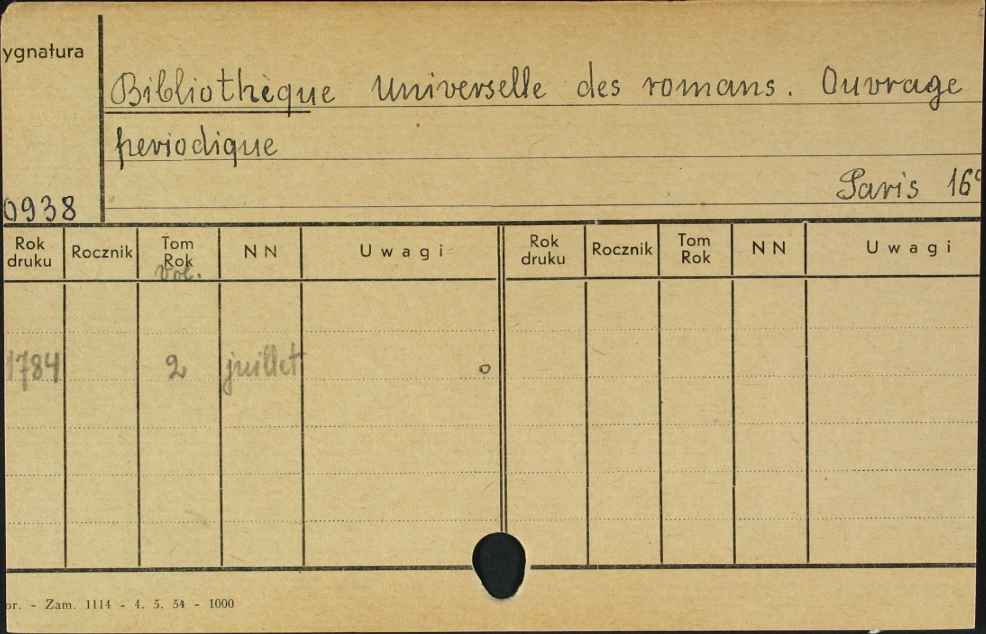 ygnatura
Bibliothèque Universelle des romans. Ouvrage
periodique
Paris 16°
0938
Rok druku Rocznik Tom Rok Vol. NN Uwagi Rok druku Rocznik Tom Rok NN Uwagi
1784 2 juillet
or. - Zam. 1114 - 4. 5. 54 - 1000